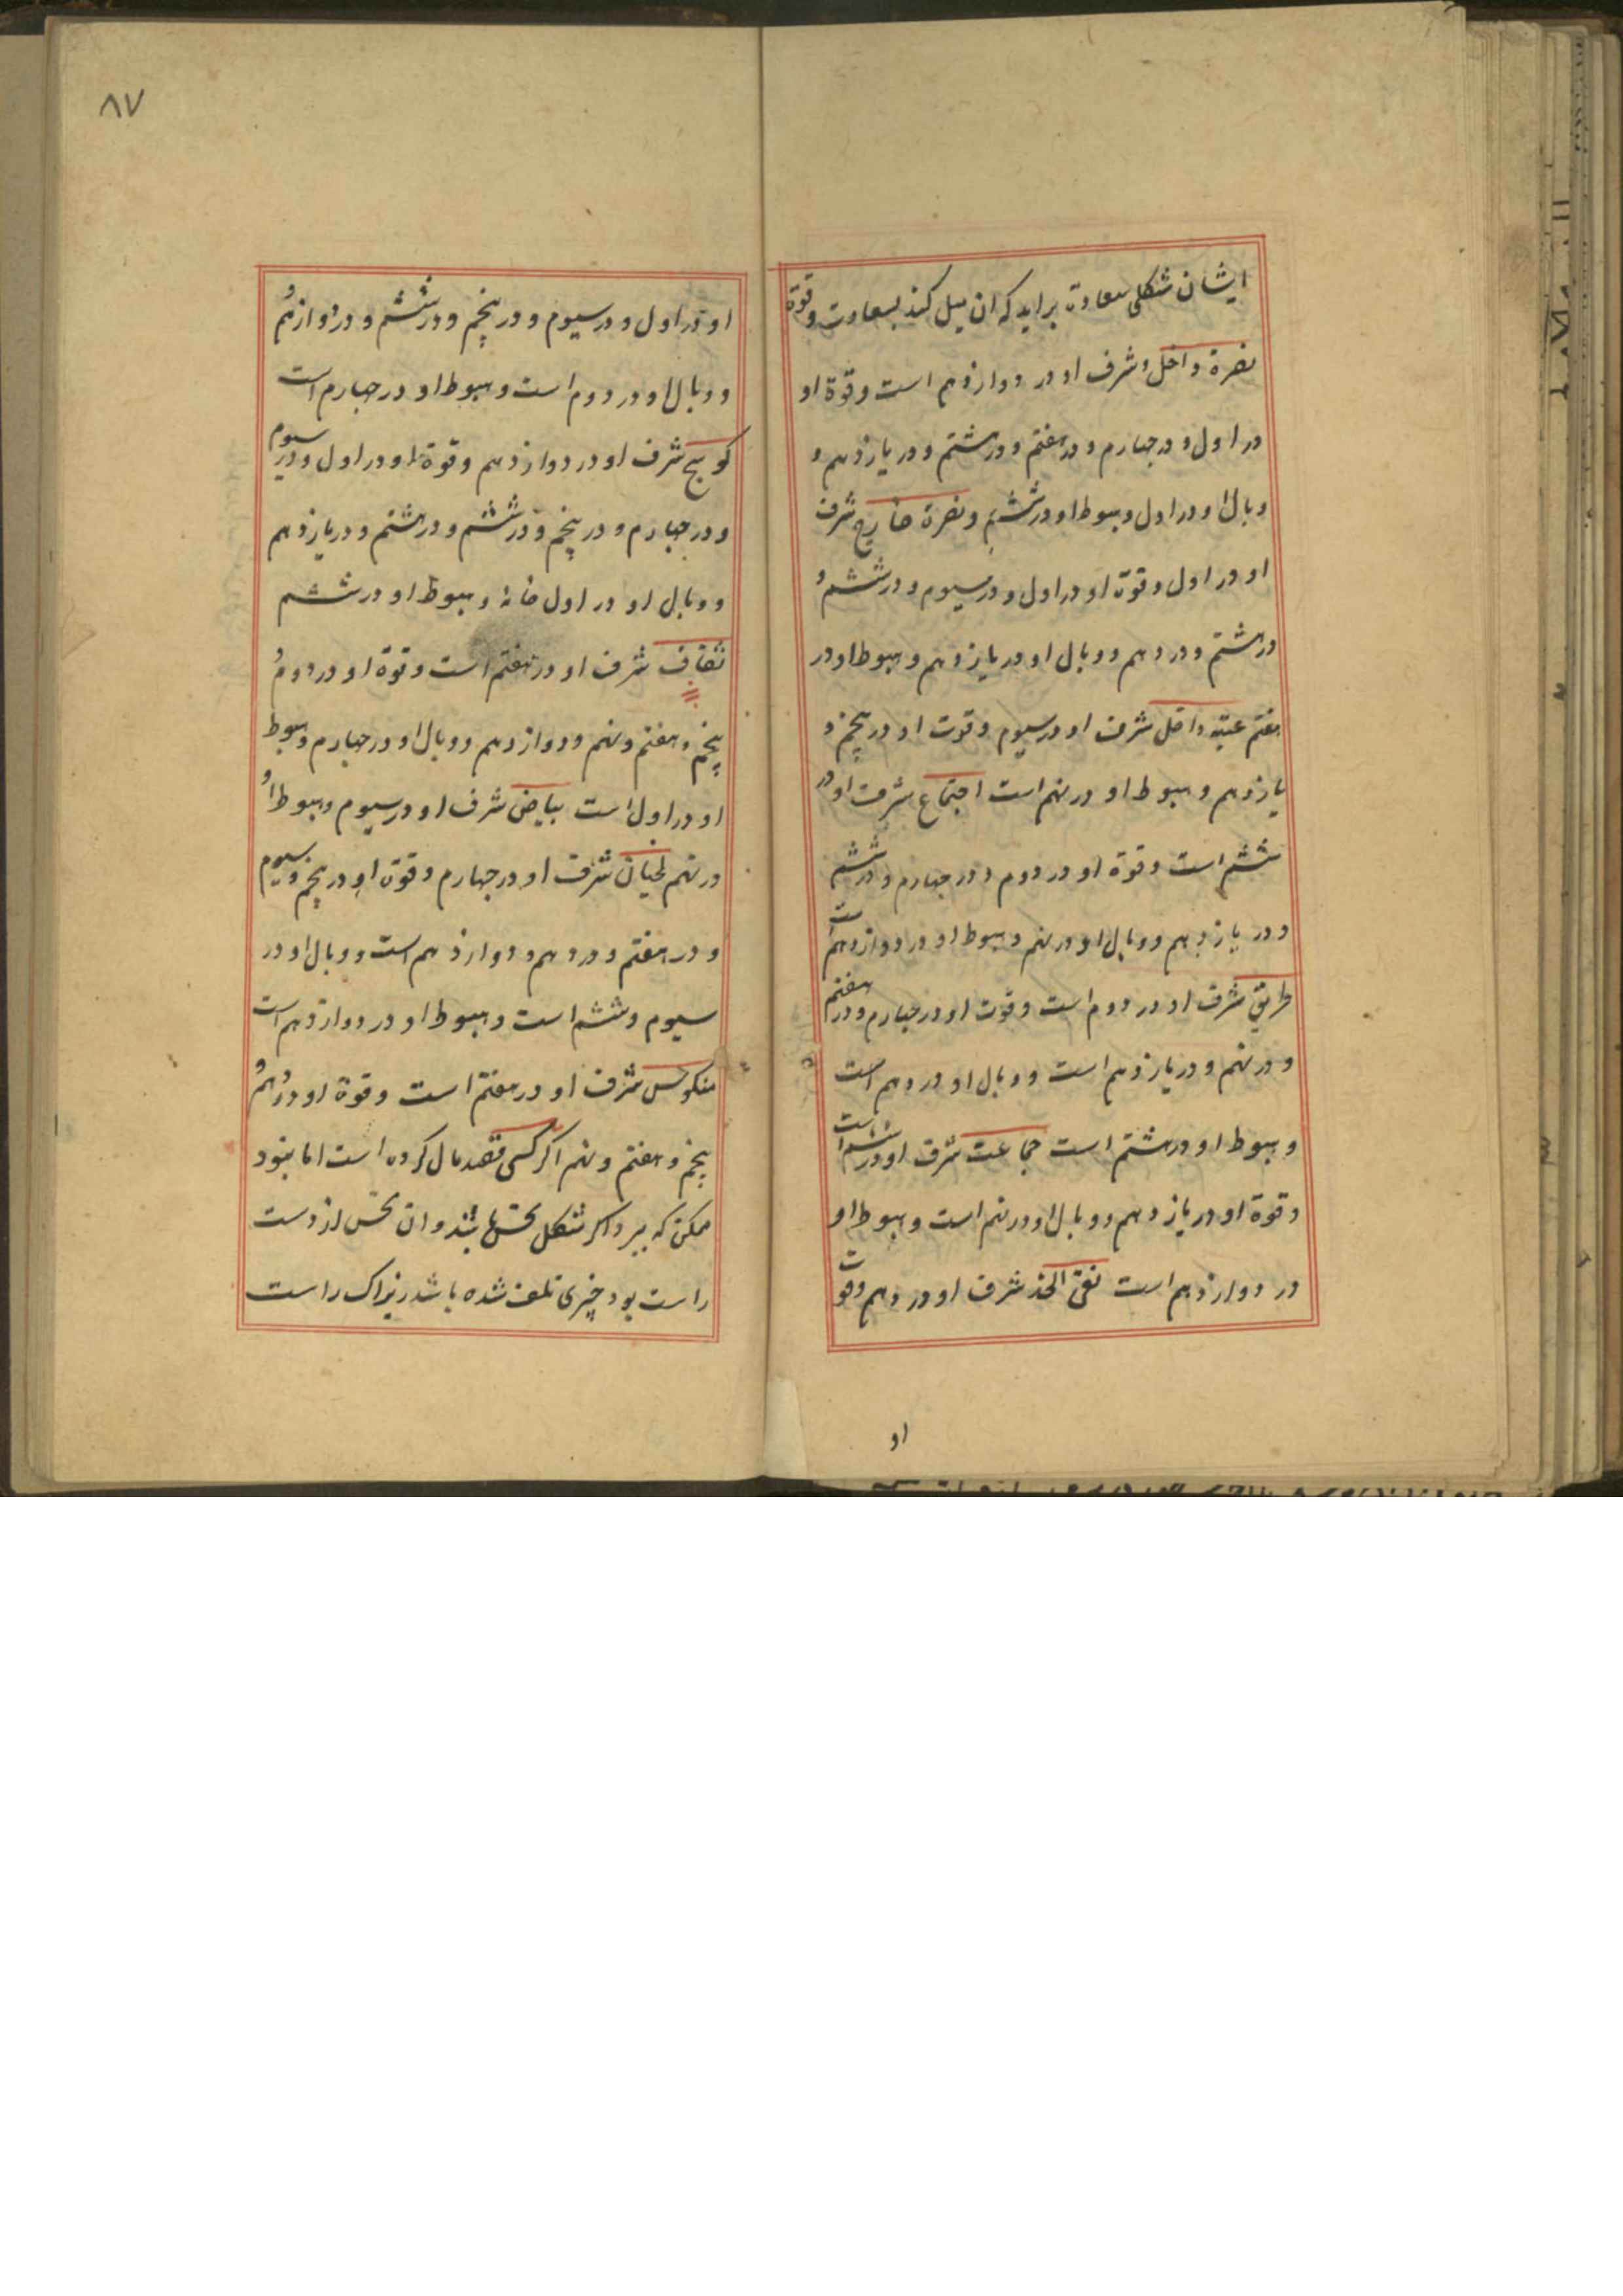 ایشان شکلی سعادة براید که ان میل کند بسعادت وقوة
نصرة داخل شرف او در دوازدهم است وقوة او
در اول و در چهارم و در هفتم و در هشتم و در یازدهم و
وبال او در اول وهبوط او در ششم ونصرة خارج شرف
او در اول وقوة او در اول و در سیوم و در ششم و
در هشتم و در دهم ووبال او در یازدهم وهبوط او در
هفتم عتبه داخل شرف او در سیوم وقوت او در پنجم و
یازدهم وهبوط او در نهم است اجتماع شرف او در
ششم است وقوة او در دوم و در چهارم و در ششم
و در یازدهم ووبال او در نهم وهبوط او در دوازدهم است
طریق شرف او در دوم است وقوت او در چهارم و در هفتم
و در نهم و در یازدهم است ووبال او در دهم است
وهبوط او در هشتم است جماعت شرف او در ششم است
وقوة او در یازدهم ووبال او در نهم است وهبوط او
در دوازدهم است نقی الخد شرف او در دهم وقوت
او
۸۷
او در اول و در سیوم و در پنجم و در ششم و در دوازدهم و
ووبال او در دوم است وهبوط او در چهارم است
کوسج شرف او در دوازدهم وقوة او در اول و در سیوم
و در چهارم و در پنجم و در ششم و در هشتم و در یازدهم
ووبال او در اول خانه وهبوط او در ششم
نقاف شرف او در هفتم است وقوة او در دوم و
پنجم و هفتم ونهم ودوازدهم ووبال او در چهارم وهبوط
او در اول است بیاض شرف او در سیوم وهبوط او
در نهم لحیان شرف او در چهارم وقوة او در پنجم وسیوم
و در هفتم و در دهم و دوازدهم است ووبال او در
سیوم وششم است وهبوط او در دوازدهم است
منکوس شرف او در هفتم است وقوة او در دهم و
پنجم و هفتم ونهم اکر کسی قصد مال کرده است اما نبود
ممکن که ببرد اکر شکل نحس باشد وان نحس از دست
راست بود چیزی تلف شده باشد زیراک راست